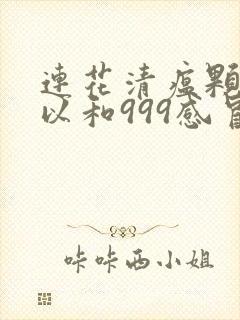 連花清瘟顆
以和999感冒
咔咔西小姐